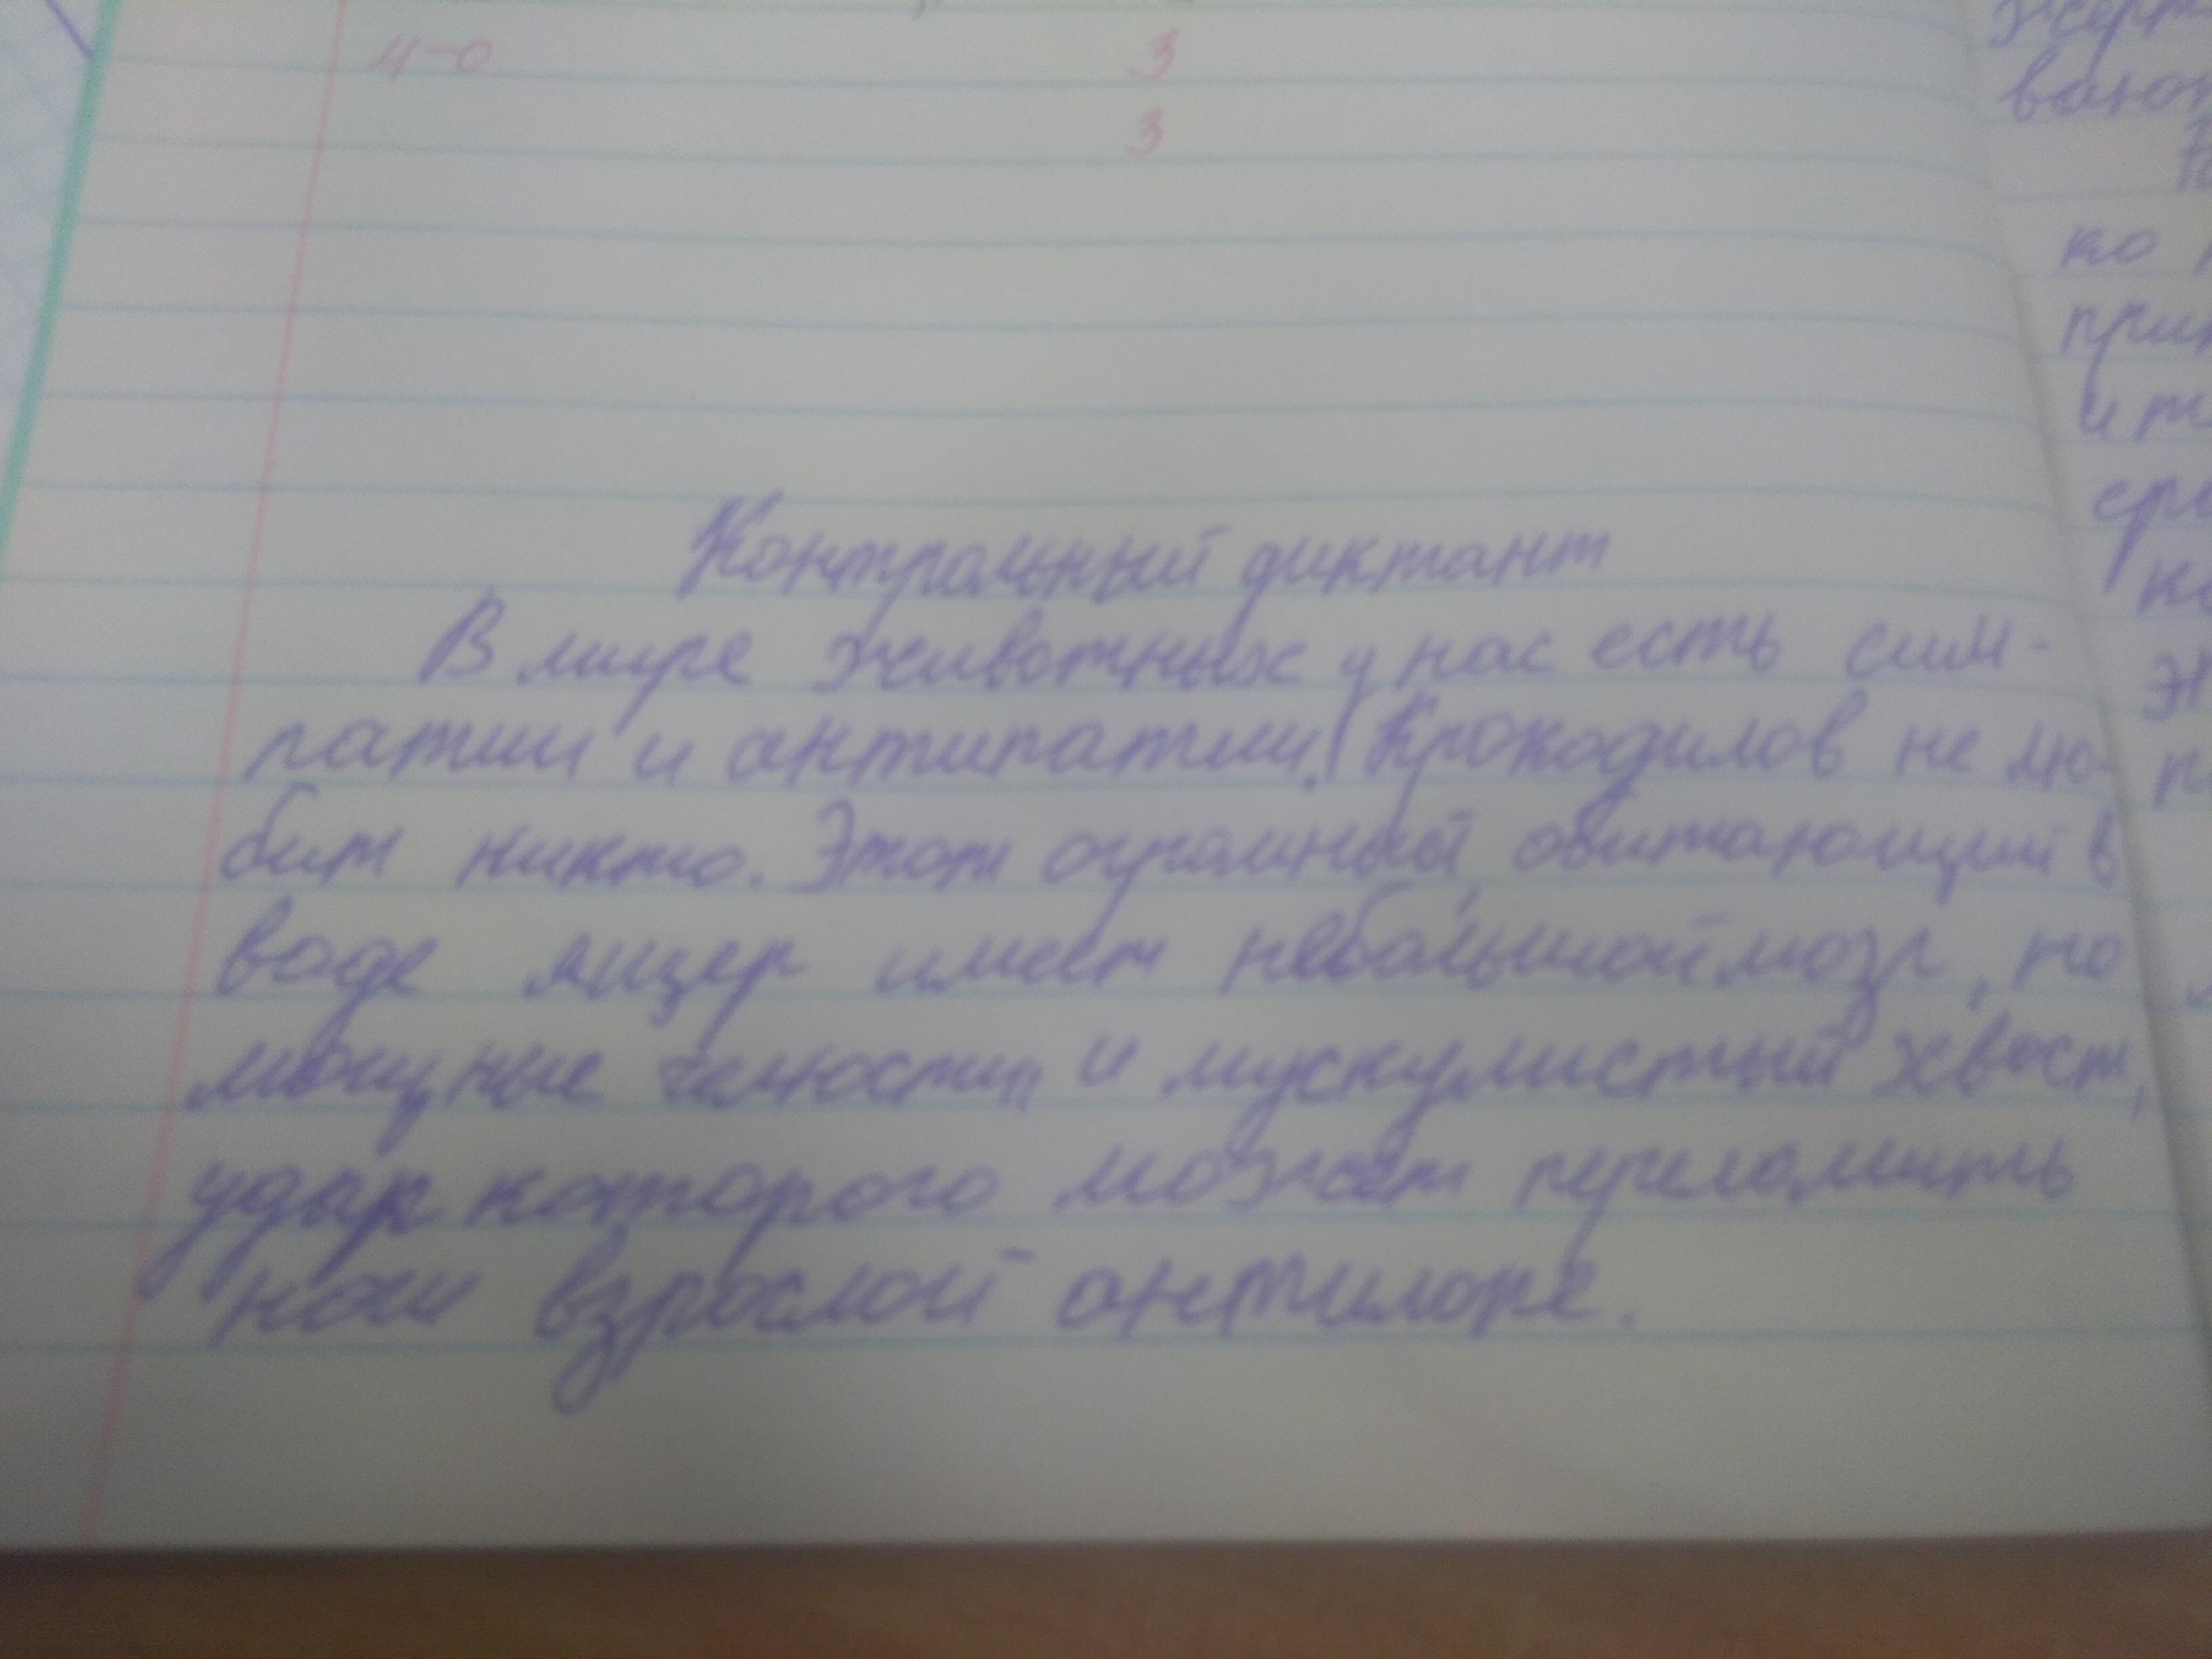 4-0 3
3
Контрольный диктант
В мире животных у нас есть сим-
патии и антипатии. Крокодилов не лю-
бит никто. Этот огромный, обитающий в
воде ящер имеет небольшой мозг, но
мощные челюсти и мускулистый хвост,
удар которого может переломить
ноги взрослой антилопе.
ко